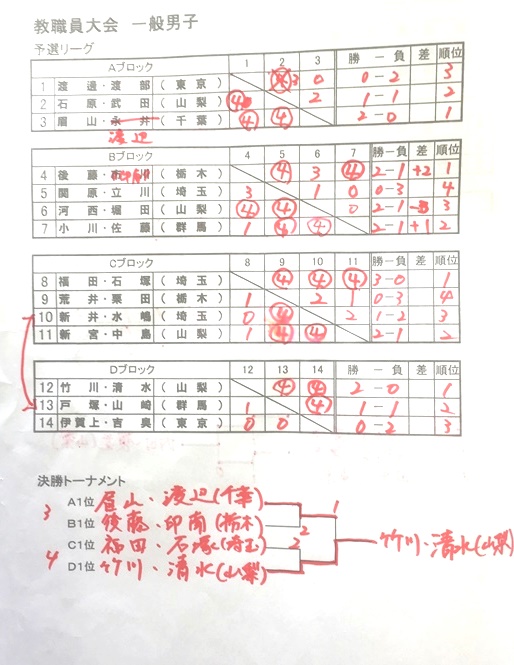 教職員大会 一般男子
予選リーグ
Aブロック 1 2 3 勝 ー 負 差 順位
1 渡 邉・渡 部 ( 東 京 ) 3 0 0 - 2 3
2 石 原・武 田 ( 山 梨 ) ④ 2 1 - 1 2
3 眉 山・永 井 ( 千 葉 ) ④ ④ 2 - 0 1
渡辺
Bブロック 4 5 6 7 勝ー負 差 順位
4 後 藤・印南 ( 栃 木 ) ④ 3 ④ 2-1 +2 1
5 関 原・立 川 ( 埼 玉 ) 3 1 0 0-3 4
6 河 西・堀 田 ( 山 梨 ) ④ ④ 0 2-1 3
7 小 川・佐 藤 ( 群 馬 ) 1 ④ ④ 2-1 +1 2
Cブロック 8 9 10 11 勝ー負 差 順位
8 福 田・石 塚 ( 埼 玉 ) ④ ④ ④ 3-0 1
9 荒 井・栗 田 ( 栃 木 ) 1 2 1 0-3 4
10 新 井・水 嶋 ( 埼 玉 ) 0 ④ 2 1-2 3
11 新 宮・中 島 ( 山 梨 ) 1 ④ ④ 2-1 2
Dブロック 12 13 14 勝 ー 負 差 順位
12 竹 川・清 水 ( 山 梨 ) ④ ④ 2 - 0 1
13 戸 塚・山 崎 ( 群 馬 ) 1 ④ 1 - 1 2
14 伊賀上・吉 奥 ( 東 京 ) 0 0 0 - 2 3
決勝トーナメント
3 A1位 眉山・渡辺(千葉) 1
B1位 後藤・印南(栃木) 2
竹川・清水(山梨)
C1位 福田・石塚(埼玉) 2
4 D1位 竹川・清水(山梨)